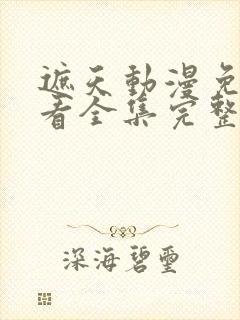 遮天動漫免
看全集完整
深海碧璽